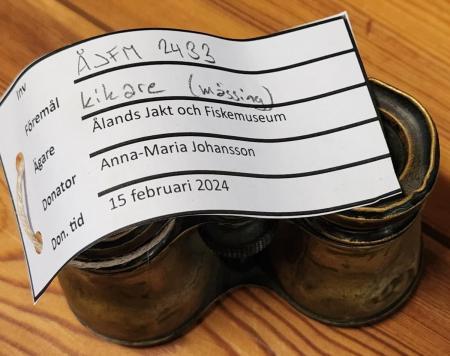 Inv ÅJFM 2433
Föremål kikare (mässing)
Ägare Ålands Jakt och Fiskemuseum
Donator Anna-Maria Johansson
Don. tid 15 februari 2024